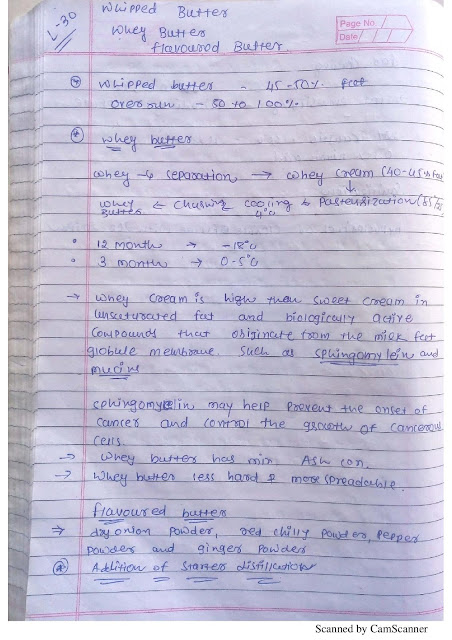 L-30
Whipped Butter
Whey Butter
flavoured Butter
Page No.
Date
Whipped butter - 45-50% fat
overrun - 50 to 100%
Whey butter
Whey → separation → Whey cream (40-45% fat
↓
Whey butter ← churning cooling 4°C ← Pasteurization (85
• 12 month → -18°C
• 3 month → 0-5°C
→ Whey Cream is high than sweet cream in
unsaturated fat and biologically active
compounds that originate from the milk fat
globule membrane. Such as sphingomylein and
mucins
sphingomyelin may help prevent the onset of
cancer and control the growth of cancerous
cells
→ Whey butter has min Ash con.
→ Whey butter less hard & more spreadable.
flavoured butter
⇒ dry onion powder, red chilly powder, pepper
powder and ginger powder
Addition of starter distillation
Scanned by CamScanner